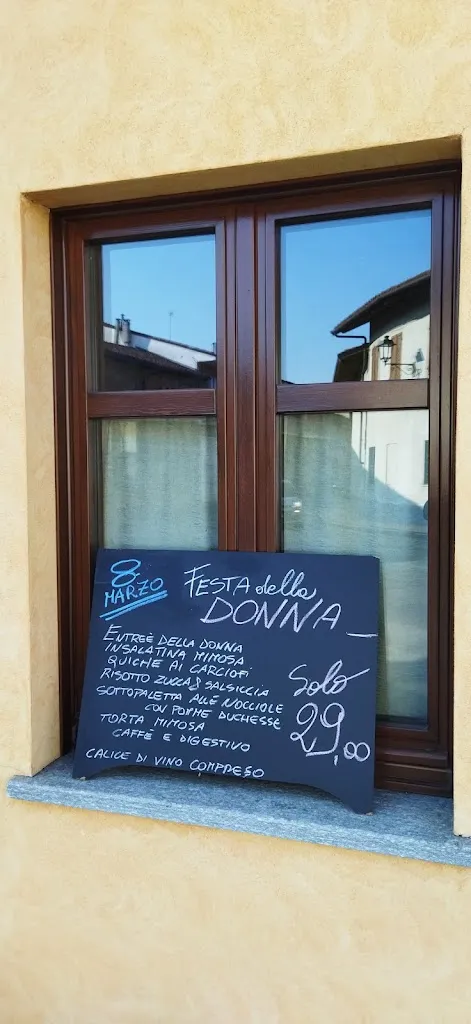 8 MARZO
FESTA della
DONNA
ENTREÈ DELLA DONNA
INSALATINA MIMOSA
QUICHE AI CARCIOFI
RISOTTO ZUCCA & SALSICCIA
SOTTOPALETTA ALLE NOCCIOLE
CON POMME DUCHESSE
TORTA MIMOSA
CAFFÈ E DIGESTIVO
CALICE DI VINO COMPRESO
Solo
29,00